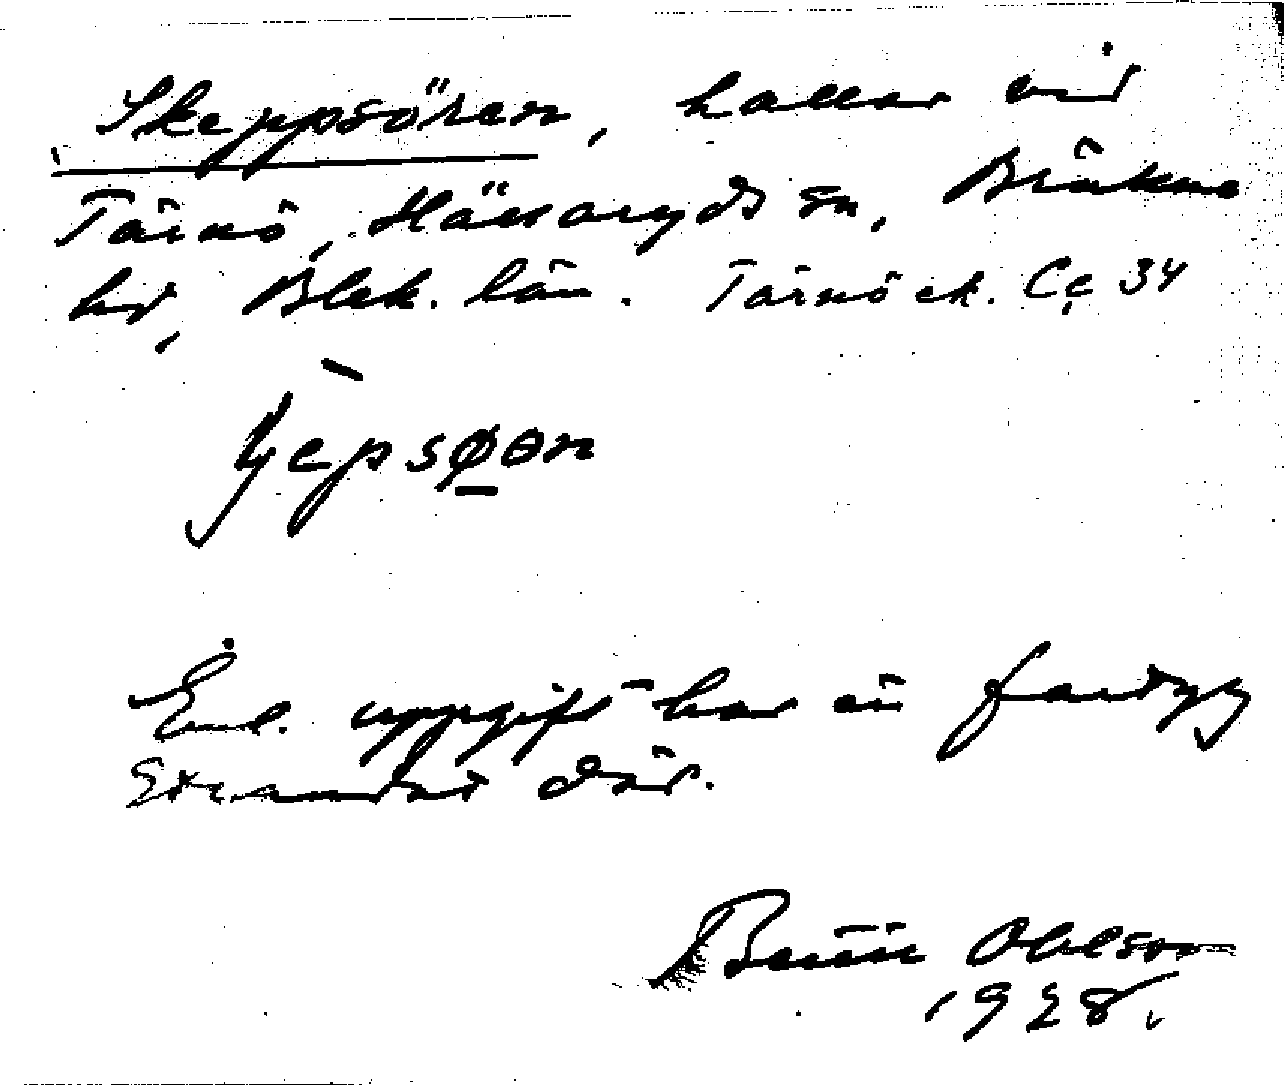 Skeppsören, hallar vid
Tärnö, Hällaryds sn, Bräkne
hd, Blek. län. Tärnö ek. Cc 34
Enl. uppgift har en fartyg
strandat där.
Bertil Ohlson
1928.